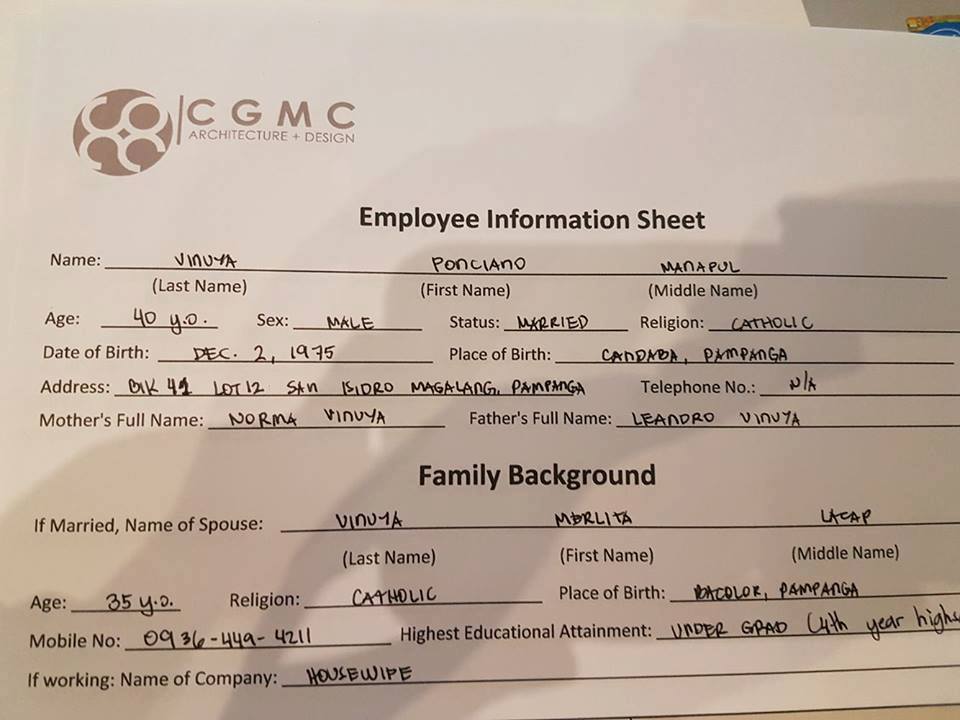 CGMC
ARCHITECTURE + DESIGN
Employee Information Sheet
Name: VINUYA PONCIANO MANAPUL
(Last Name) (First Name) (Middle Name)
Age: 40 y.o. Sex: MALE Status: MARRIED Religion: CATHOLIC
Date of Birth: DEC. 2, 1975 Place of Birth: CANDABA, PAMPANGA
Address: BLK 41 LOT 12 SAN ISIDRO MAGALANG, PAMPANGA Telephone No.: N/A
Mother's Full Name: NORMA VINUYA Father's Full Name: LEANDRO VINUYA
Family Background
If Married, Name of Spouse: VINUYA MERLITA LACAP
(Last Name) (First Name) (Middle Name)
Age: 35 y.o. Religion: CATHOLIC Place of Birth: BACOLOR, PAMPANGA
Mobile No: 0936-449-4211 Highest Educational Attainment: UNDER GRAD (4th year highs
If working: Name of Company: HOUSEWIFE